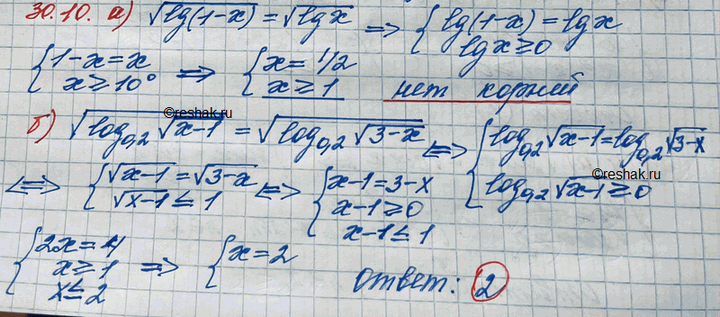 30.10. а) √lg(1-x) = √lg x ⟹ { lg(1-x) = lg x
lg x ≥ 0
{ 1-x = x
x ≥ 10⁰ ⟹ { x = 1/2
x ≥ 1 нет корней
©reshak.ru
б) √log₀,₂ √x-1 = √log₀,₂ √3-x ⟺ { log₀,₂ √x-1 = log₀,₂ √3-x
log₀,₂ √x-1 ≥ 0
©reshak.ru
⟺ { √x-1 = √3-x
√x-1 ≤ 1 ⟺ { x-1 = 3-x
x-1 ≥ 0
x-1 ≤ 1
{ 2x = 4
x ≥ 1
x ≤ 2 ⟹ { x = 2
ответ: 2